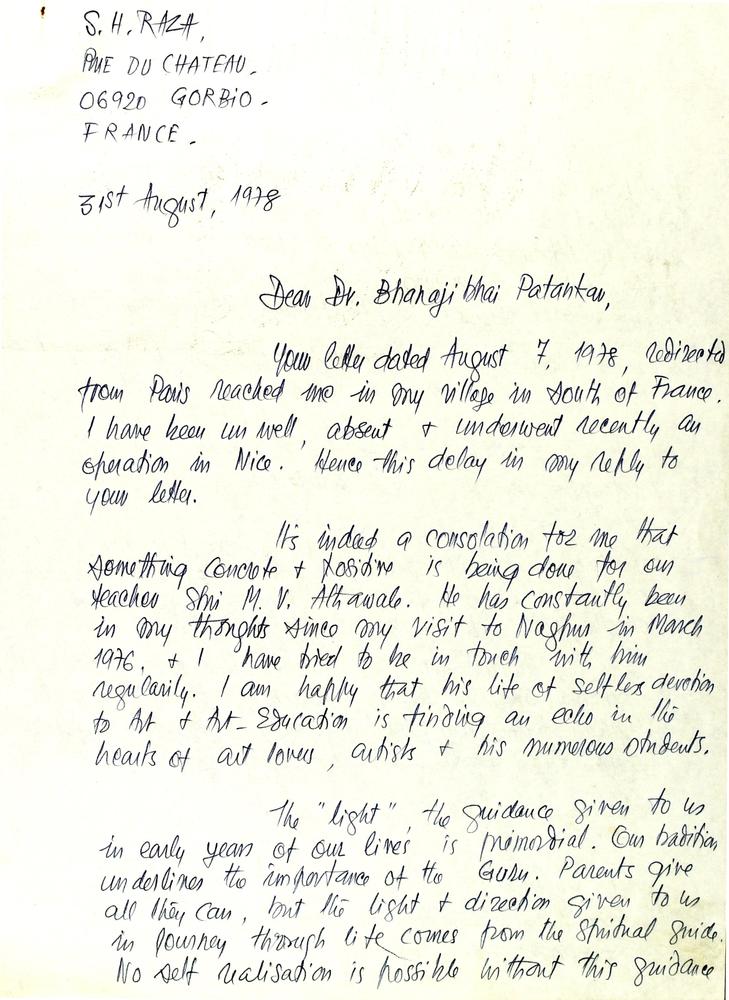 S. H. RAZA,
RUE DU CHATEAU.
06920 GORBIO.
FRANCE.
31st August, 1978
Dear Dr. Bhanaji bhai Patankar,
Your letter dated August 7, 1978, redirected
from Paris reached me in my village in south of France.
I have been un well, absent + underwent recently an
operation in Nice. Hence this delay in my reply to
your letter.
It's indeed a consolation for me that
something concrete + positive is being done for our
teacher Shri M. V. Athawale. He has constantly been
in my thoughts since my visit to Nagpur in March
1976, + I have tried to be in touch with him
regularily. I am happy that his life of selfless devotion
to Art + Art-Education is finding an echo in the
hearts of art lovers, artists + his numerous students.
The "light", the guidance given to us
in early years of our lives is primordial. Our tradition
underlines the importance of the Guru. Parents give
all they can, but the light + direction given to us
in journey through life comes from the spiritual guide.
No self realisation is possible without this guidance